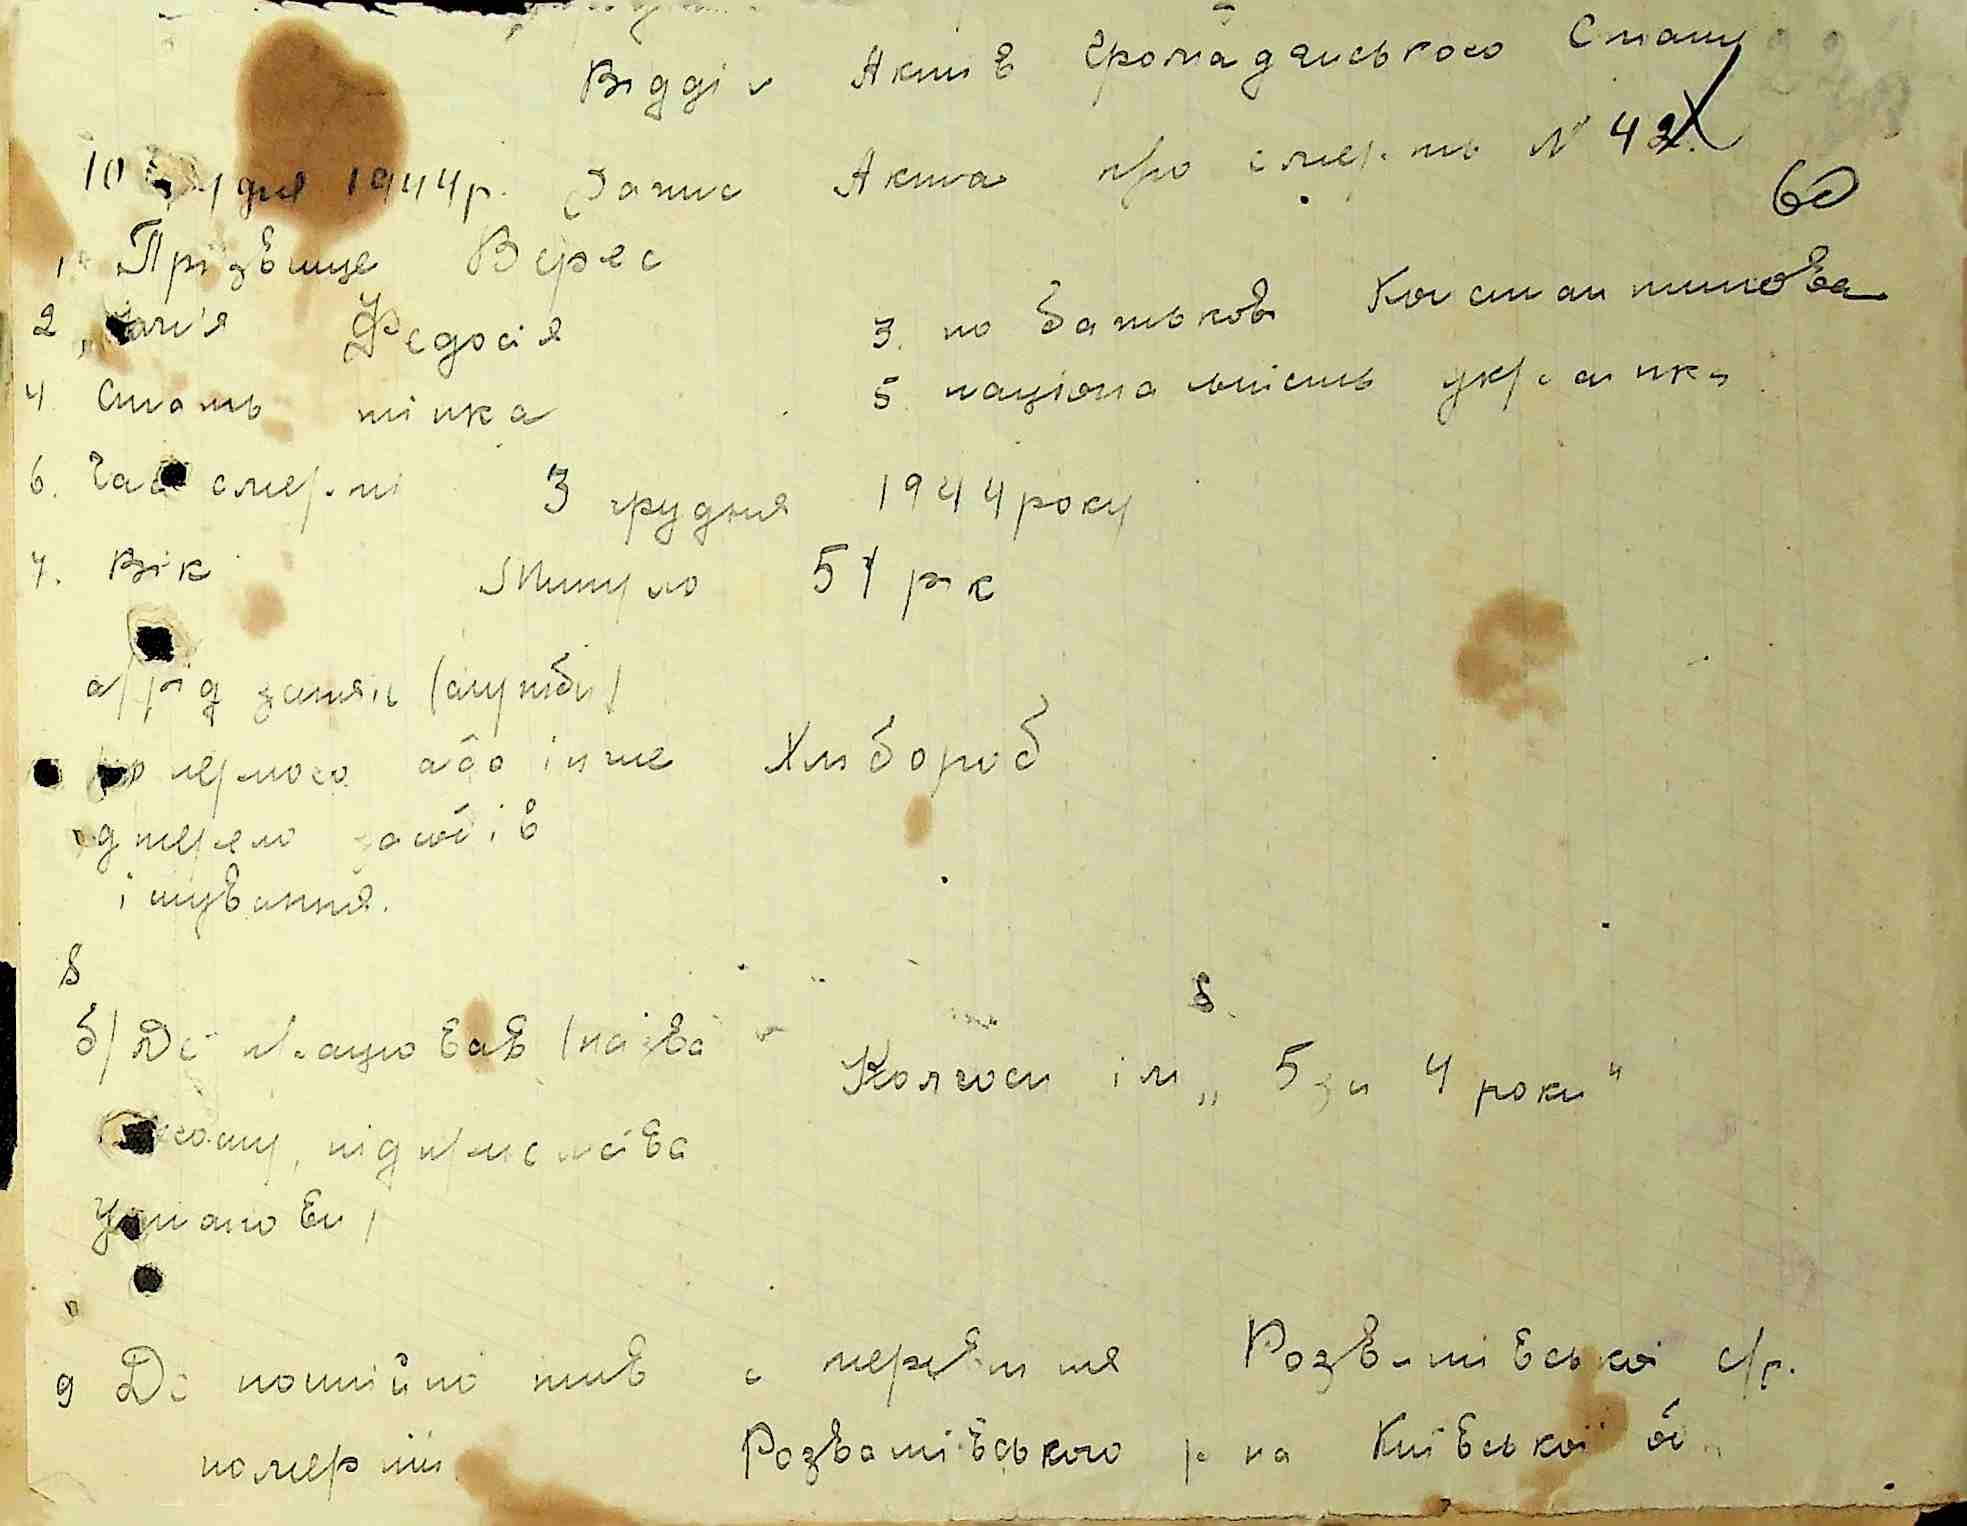 Відділ Актів Громадянського Стану
10 грудня 1944р. Запис Акта про смерть № 42.
60
1. Прізвище Верес
2. Імм'я Федосія 3. по батькові Констан тинова
4. Стать жінка 5. національність українка
6. Час смерті 3 грудня 1944 року
7. Вік Минуло 51 рік
а/ рід занять (служби)
померлого або інше Хлібороб
джерело засобів
існування.
8 8.
б/ Де працював (назва
Колгосп ім „5 за 4 роки"
підприємства
установи)
9 Де постійно жив с Розважівської с/р.
померший Розважівського р-на Київської об.